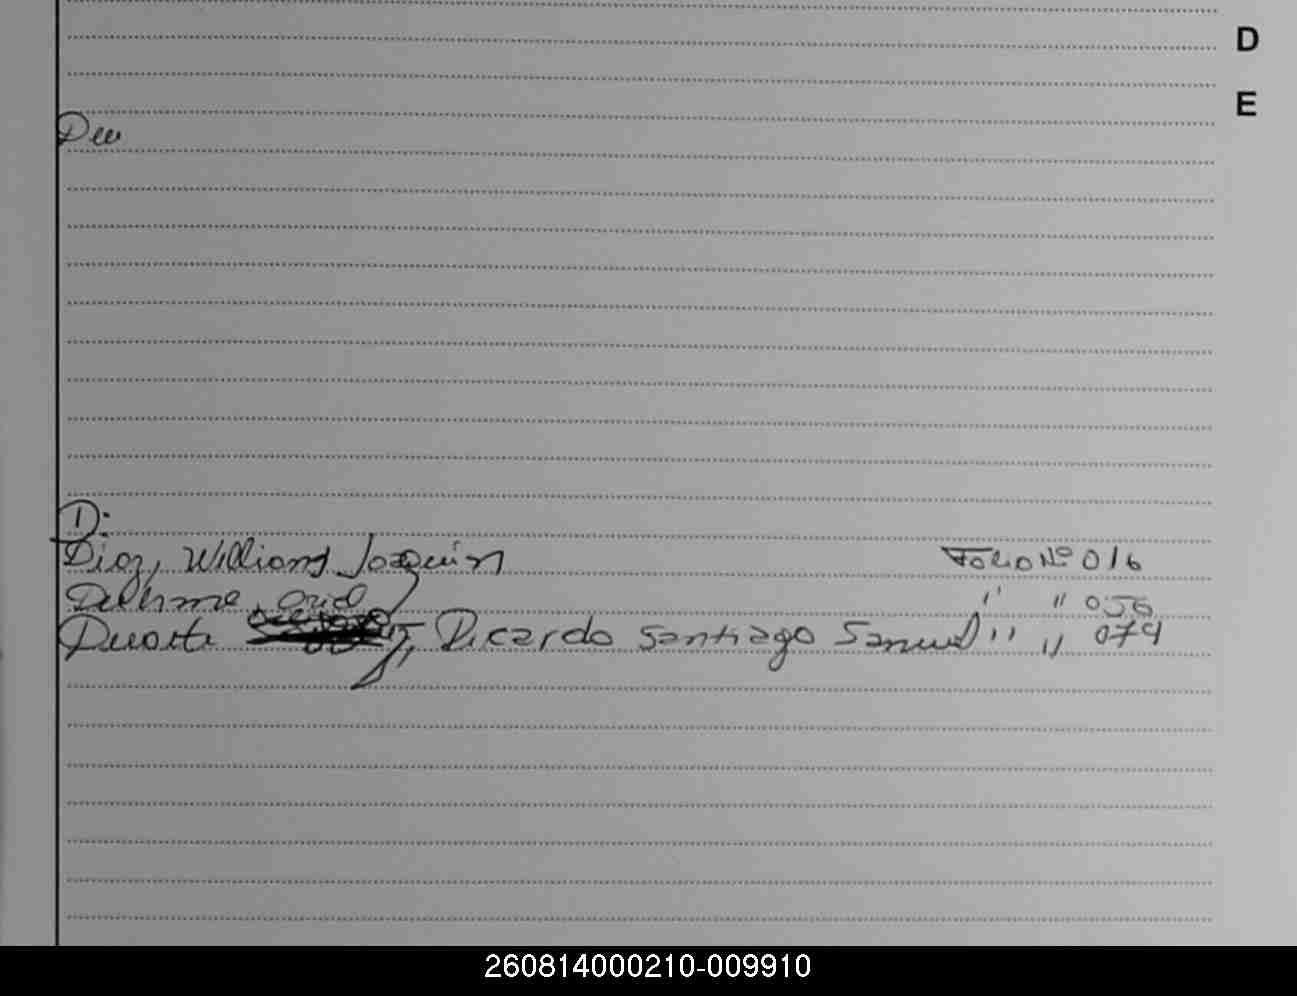 D
E
D:
Diaz, Williams Joaquin Folio Nº 016
Delerme, Oriel " " 056
Duarte Ricardo Santiago Samuel " " 079
260814000210-009910